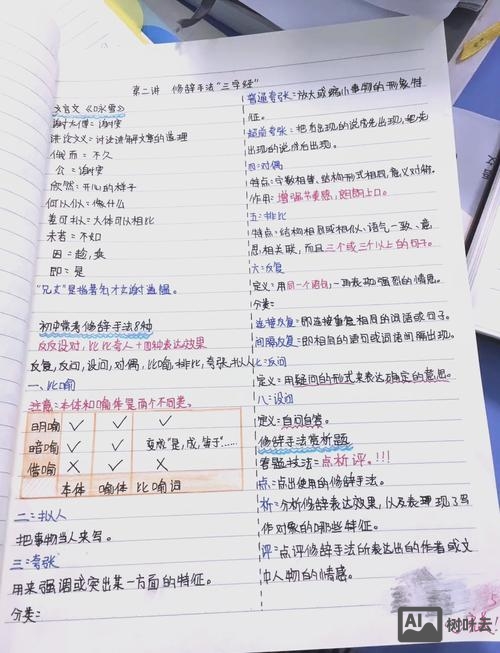 第二讲 修辞手法"三字经"
文言文《咏雪》
谢太傅=谢安
讲论文义=讨论讲解文章的道理
俄而=不久
公=谢安
欣然=开心的样子
何以似=像什么
差可拟=大体可以相比
未若=不如
因=趁,乘
即=是
"兄女"是指谢无奕女谢道韫。
初中常考修辞手法8种
反反设对,比比夸人+四种表达效果
反复,反问,设问,对偶,比喻,排比,夸张,拟人
一、比喻
注意:本体和喻体是两个不同类。
明喻 ✓ ✓ ✓
暗喻 ✓ ✓ 变成"是,成,等于"……
借喻 X ✓ X
本体 喻体 比喻词
二:拟人
把事物当人来写。
三:夸张
用来强调或突出某一方面的特征。
分类:
普通夸张=放大或缩小事物的形象特
征。
超前夸张:把后出现的说成先出现,把先
出现的说成后出现。
四:对偶
特点:字数相等、结构形式相同,意义对称。
作用:增强节奏感,朗朗上口。
五:排比
特点:结构相同或相似、语气一致、意
思相关联,而且三个或三个以上的句子。
六:反复
定义:用同一个语句,一再表现强烈的情思。
分类:
连接反复=即连接重复相同的词语或句子。
间隔反复=即相同的语句或词语间隔出现。
七:反问
定义:用疑问的形式来表达确定的意思。
八:设问
定义:自问自答。
修辞手法赏析题
答题技法=点析评。!!!
点:点出使用的修辞手法。
析:分析修辞表达效果,以及表现出了写
作对象的哪些特征。
评:点评修辞手法所表达出的作者或文
中人物的情感。
AI 树叶去